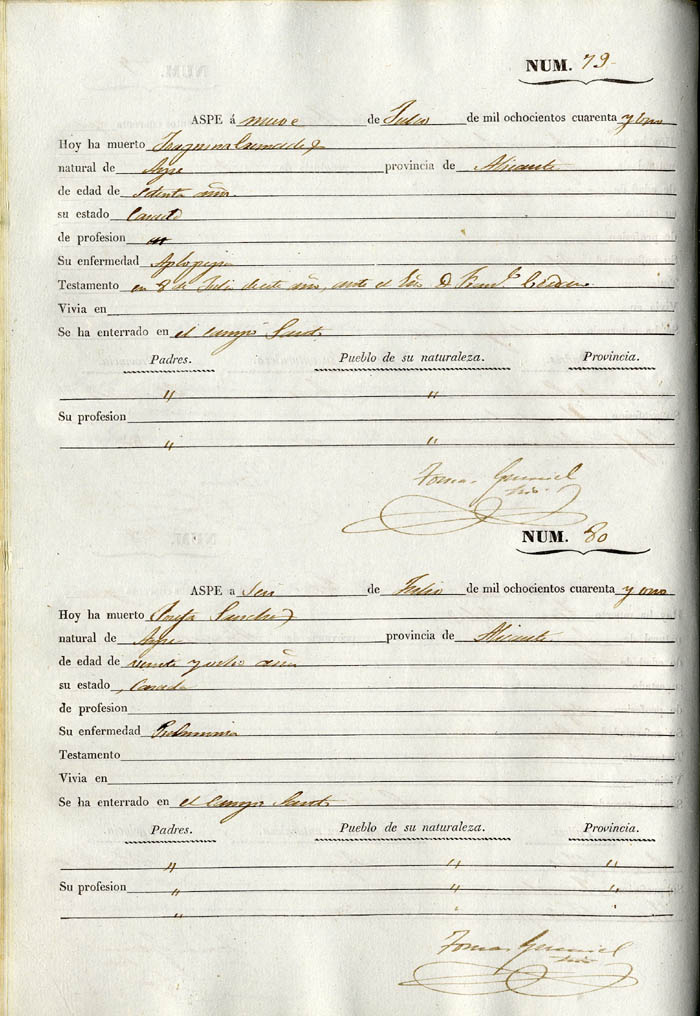 NUM. 79
ASPE á nueve de Julio de mil ochocientos cuarenta y uno
Hoy ha muerto
natural de Aspe provincia de Alicante
de edad de setenta años
su estado Casado
de profesion
Su enfermedad Aplopegia
Testamento en 8 de Julio de este año, ante el Esno D. Franco
Vivia en
Se ha enterrado en el campo Santo
Padres. Pueblo de su naturaleza. Provincia.
" "
Su profesion
" "
Tomas
NUM. 80
ASPE a Seis de Julio de mil ochocientos cuarenta y uno
Hoy ha muerto Josefa Sanchez
natural de Aspe provincia de Alicante
de edad de veinte y ocho años
su estado Casada
de profesion
Su enfermedad Pulmonia
Testamento
Vivia en
Se ha enterrado en el campo Santo
Padres. Pueblo de su naturaleza. Provincia.
" " "
Su profesion " " "
"
Tomas